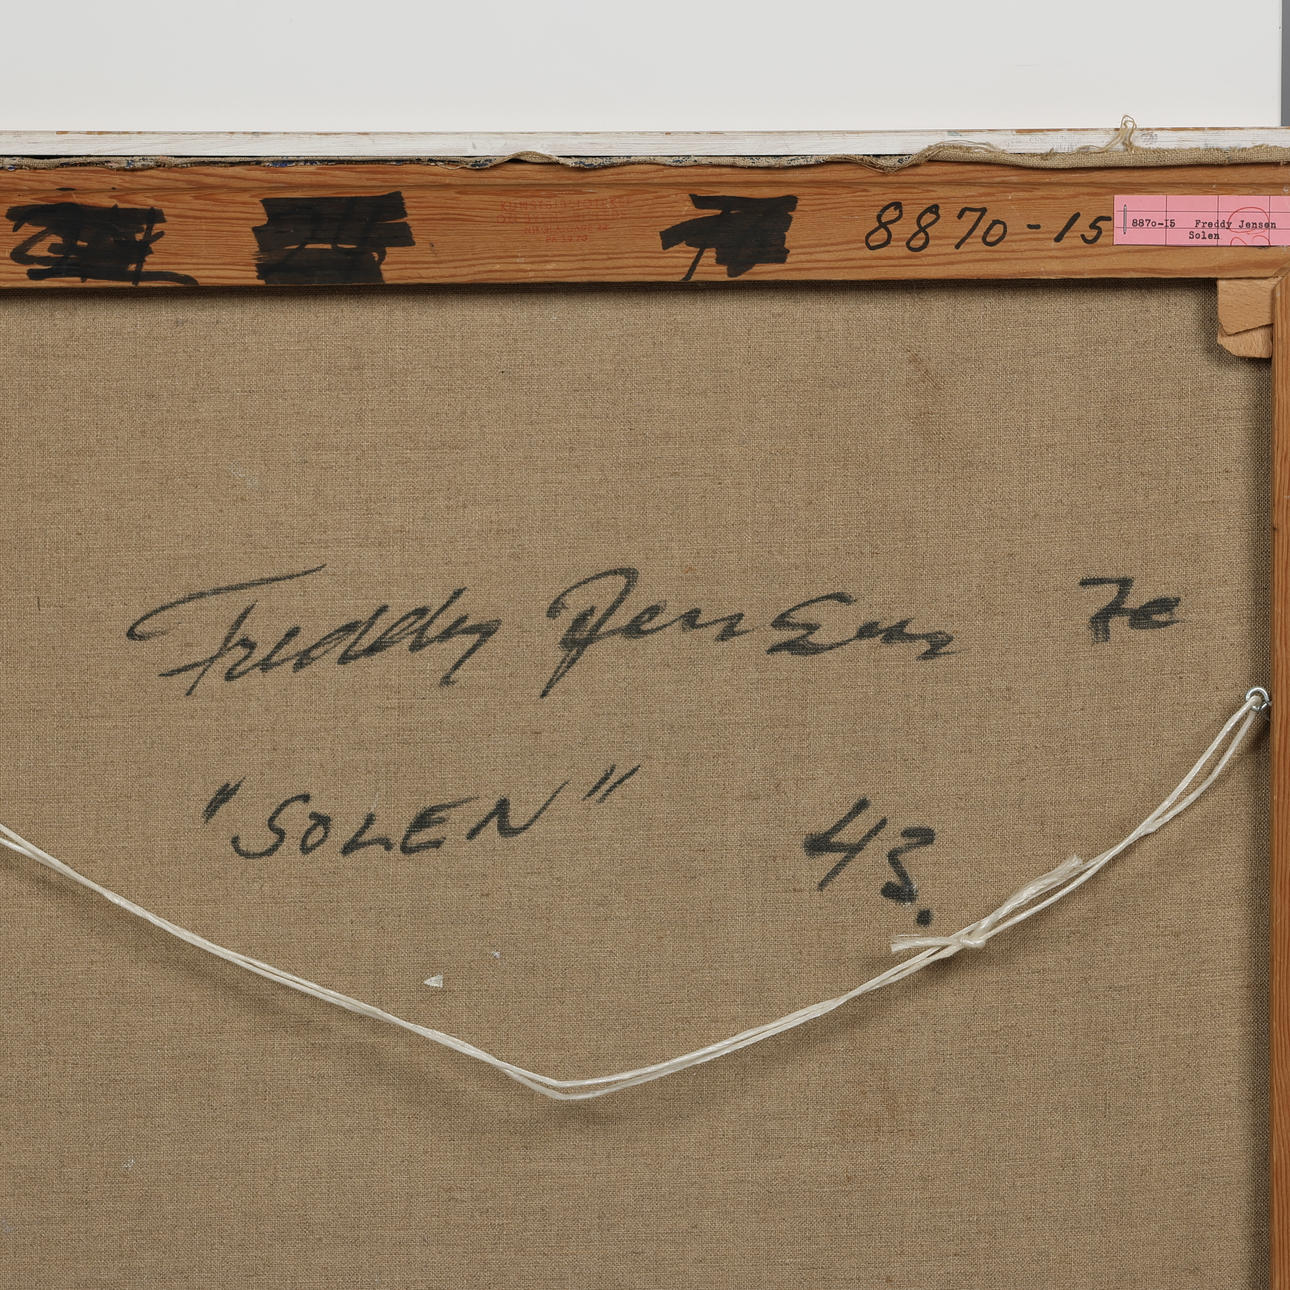 8870-15
8870-I5 Freddy Jensen
Solen
Freddy Jensen 70
"SOLEN" 43.